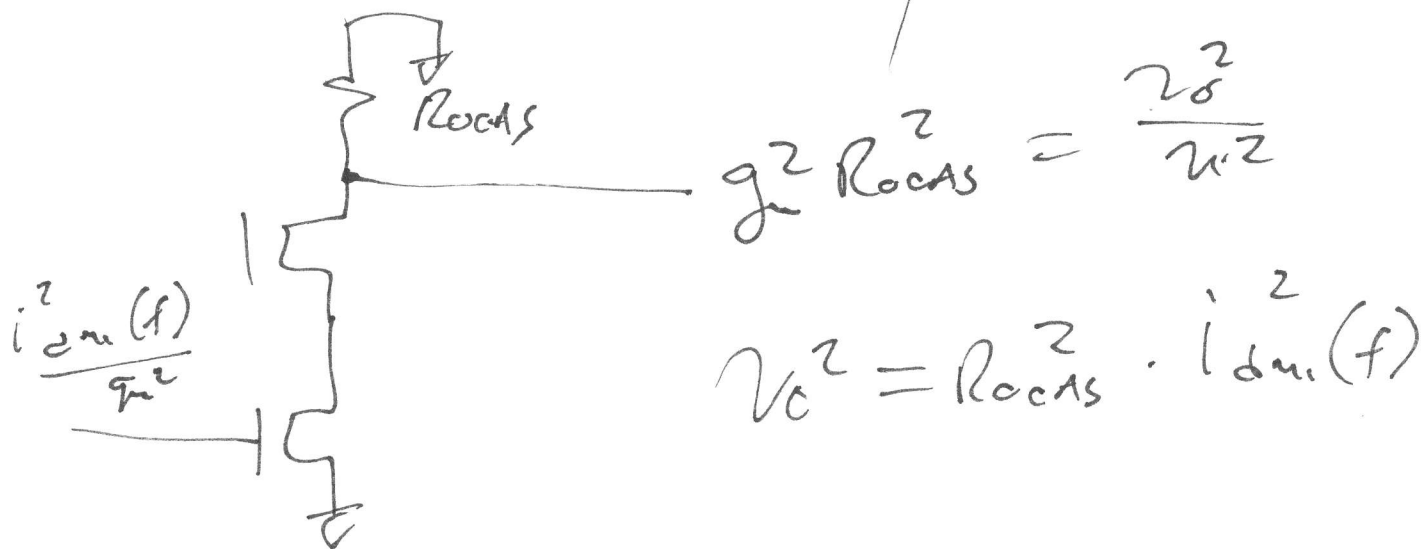 ROCAS
g_m^2 ROCAS^2 = v_o^2 / v_i^2
i^2_{dm1}(f) / g_m^2
v_o^2 = ROCAS^2 · i^2_{dm1}(f)